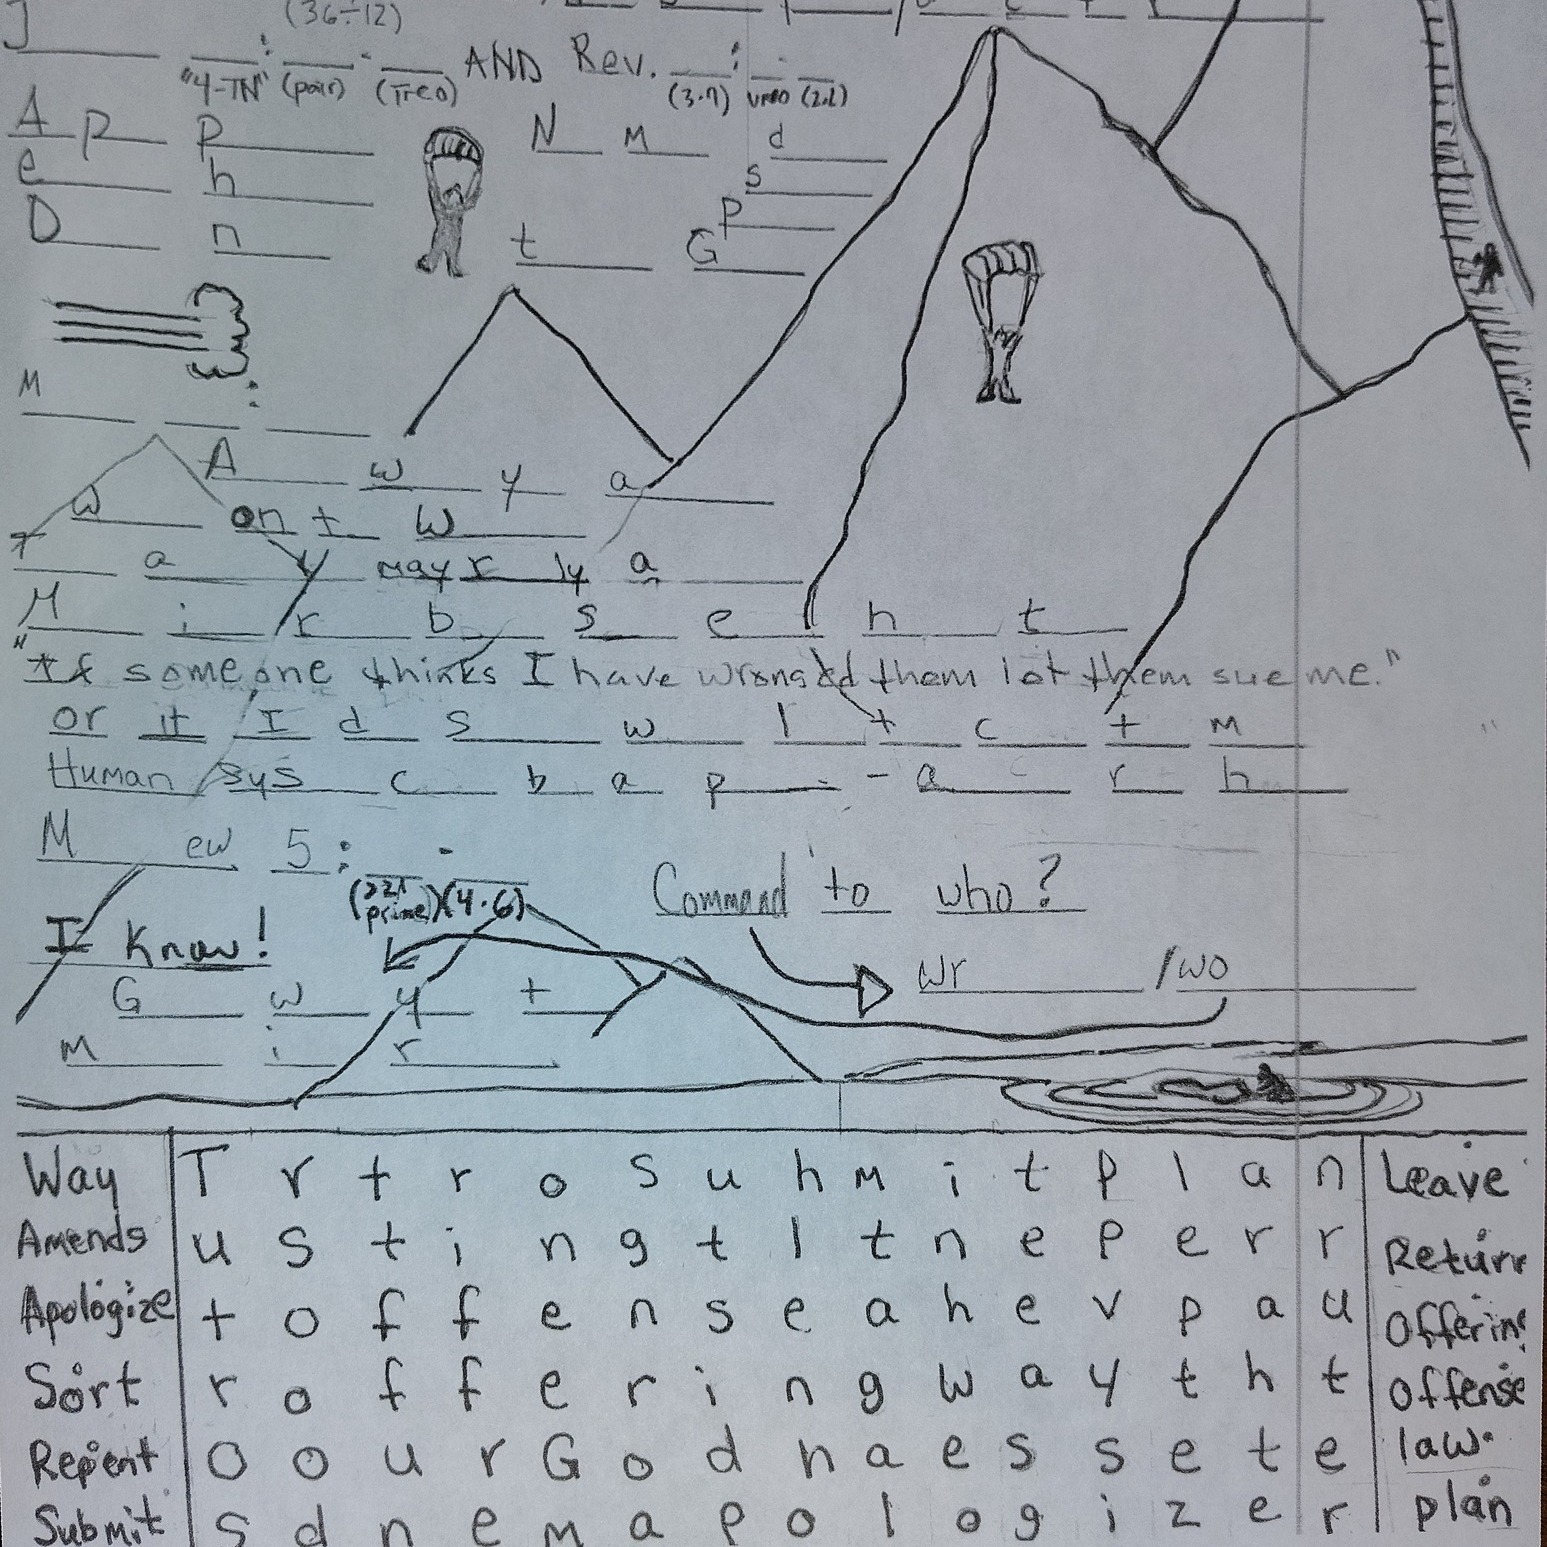 J (36÷12)
: -
"4-TN" (pair) (Treo) AND Rev. : (3·7) uno (2.2)
A P P N M d
e h s
D n P
t G
M :
A w y a
w on t w
T a y may r ly a
M i r b s e h t
"If someone thinks I have wronged them let them sue me."
or it I d s w l t c t m
Human sys c b a p - a r h
M ew 5 : -
(221 prime) (4·6) Command to who?
I Know! wr /wo
G w y t
m i r
Way T r t r o s u h m i t p l a n Leave
Amends u s t i n g t l t n e p e r r Return
Apologize t o f f e n s e a h e v p a u offering
Sort r o f f e r i n g w a y t h t offense
Repent o o u r G o d h a e s s e t e law
Submit s d n e m a p o l o g i z e r plan